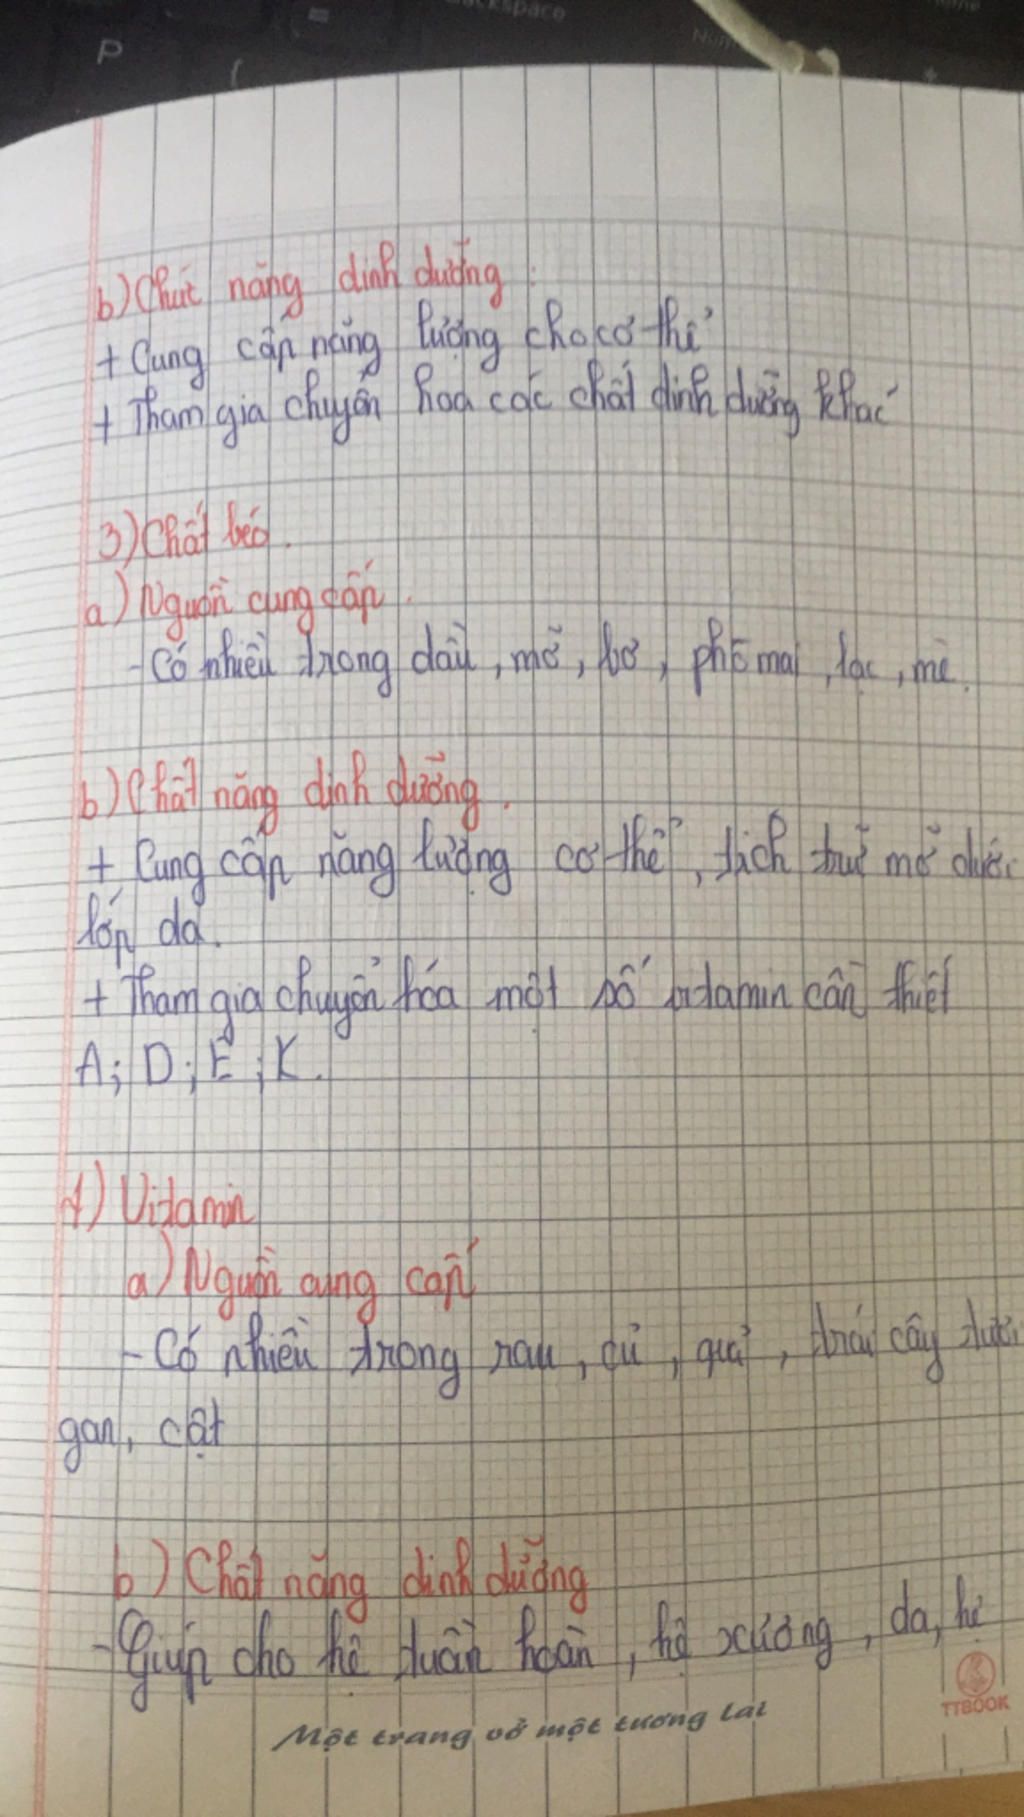 b) Chức năng dinh dưỡng :
+ Cung cấp năng lượng cho cơ thể
+ Tham gia chuyển hoa các chất dinh dưỡng khác
3) Chất béo.
a) Nguồn cung cấp.
- Có nhiều trong dầu, mỡ, bơ, phô mai, lạc, mè.
b) Chất năng dinh dưỡng.
+ Cung cấp năng lượng cơ thể, tích trữ mỡ dưới
lớp da.
+ Tham gia chuyển hóa một số vitamin cần thiết
A; D; E; K.
4) Vitamin
a) Nguồn cung cấp
- Có nhiều trong rau, củ, quả, trái cây tươi
gan, cật
b) Chất năng dinh dưỡng
- Giúp cho hệ tuần hoàn, hệ xương, da, hệ
Một trang vở một tương lai
TTBOOK
P
Backspace